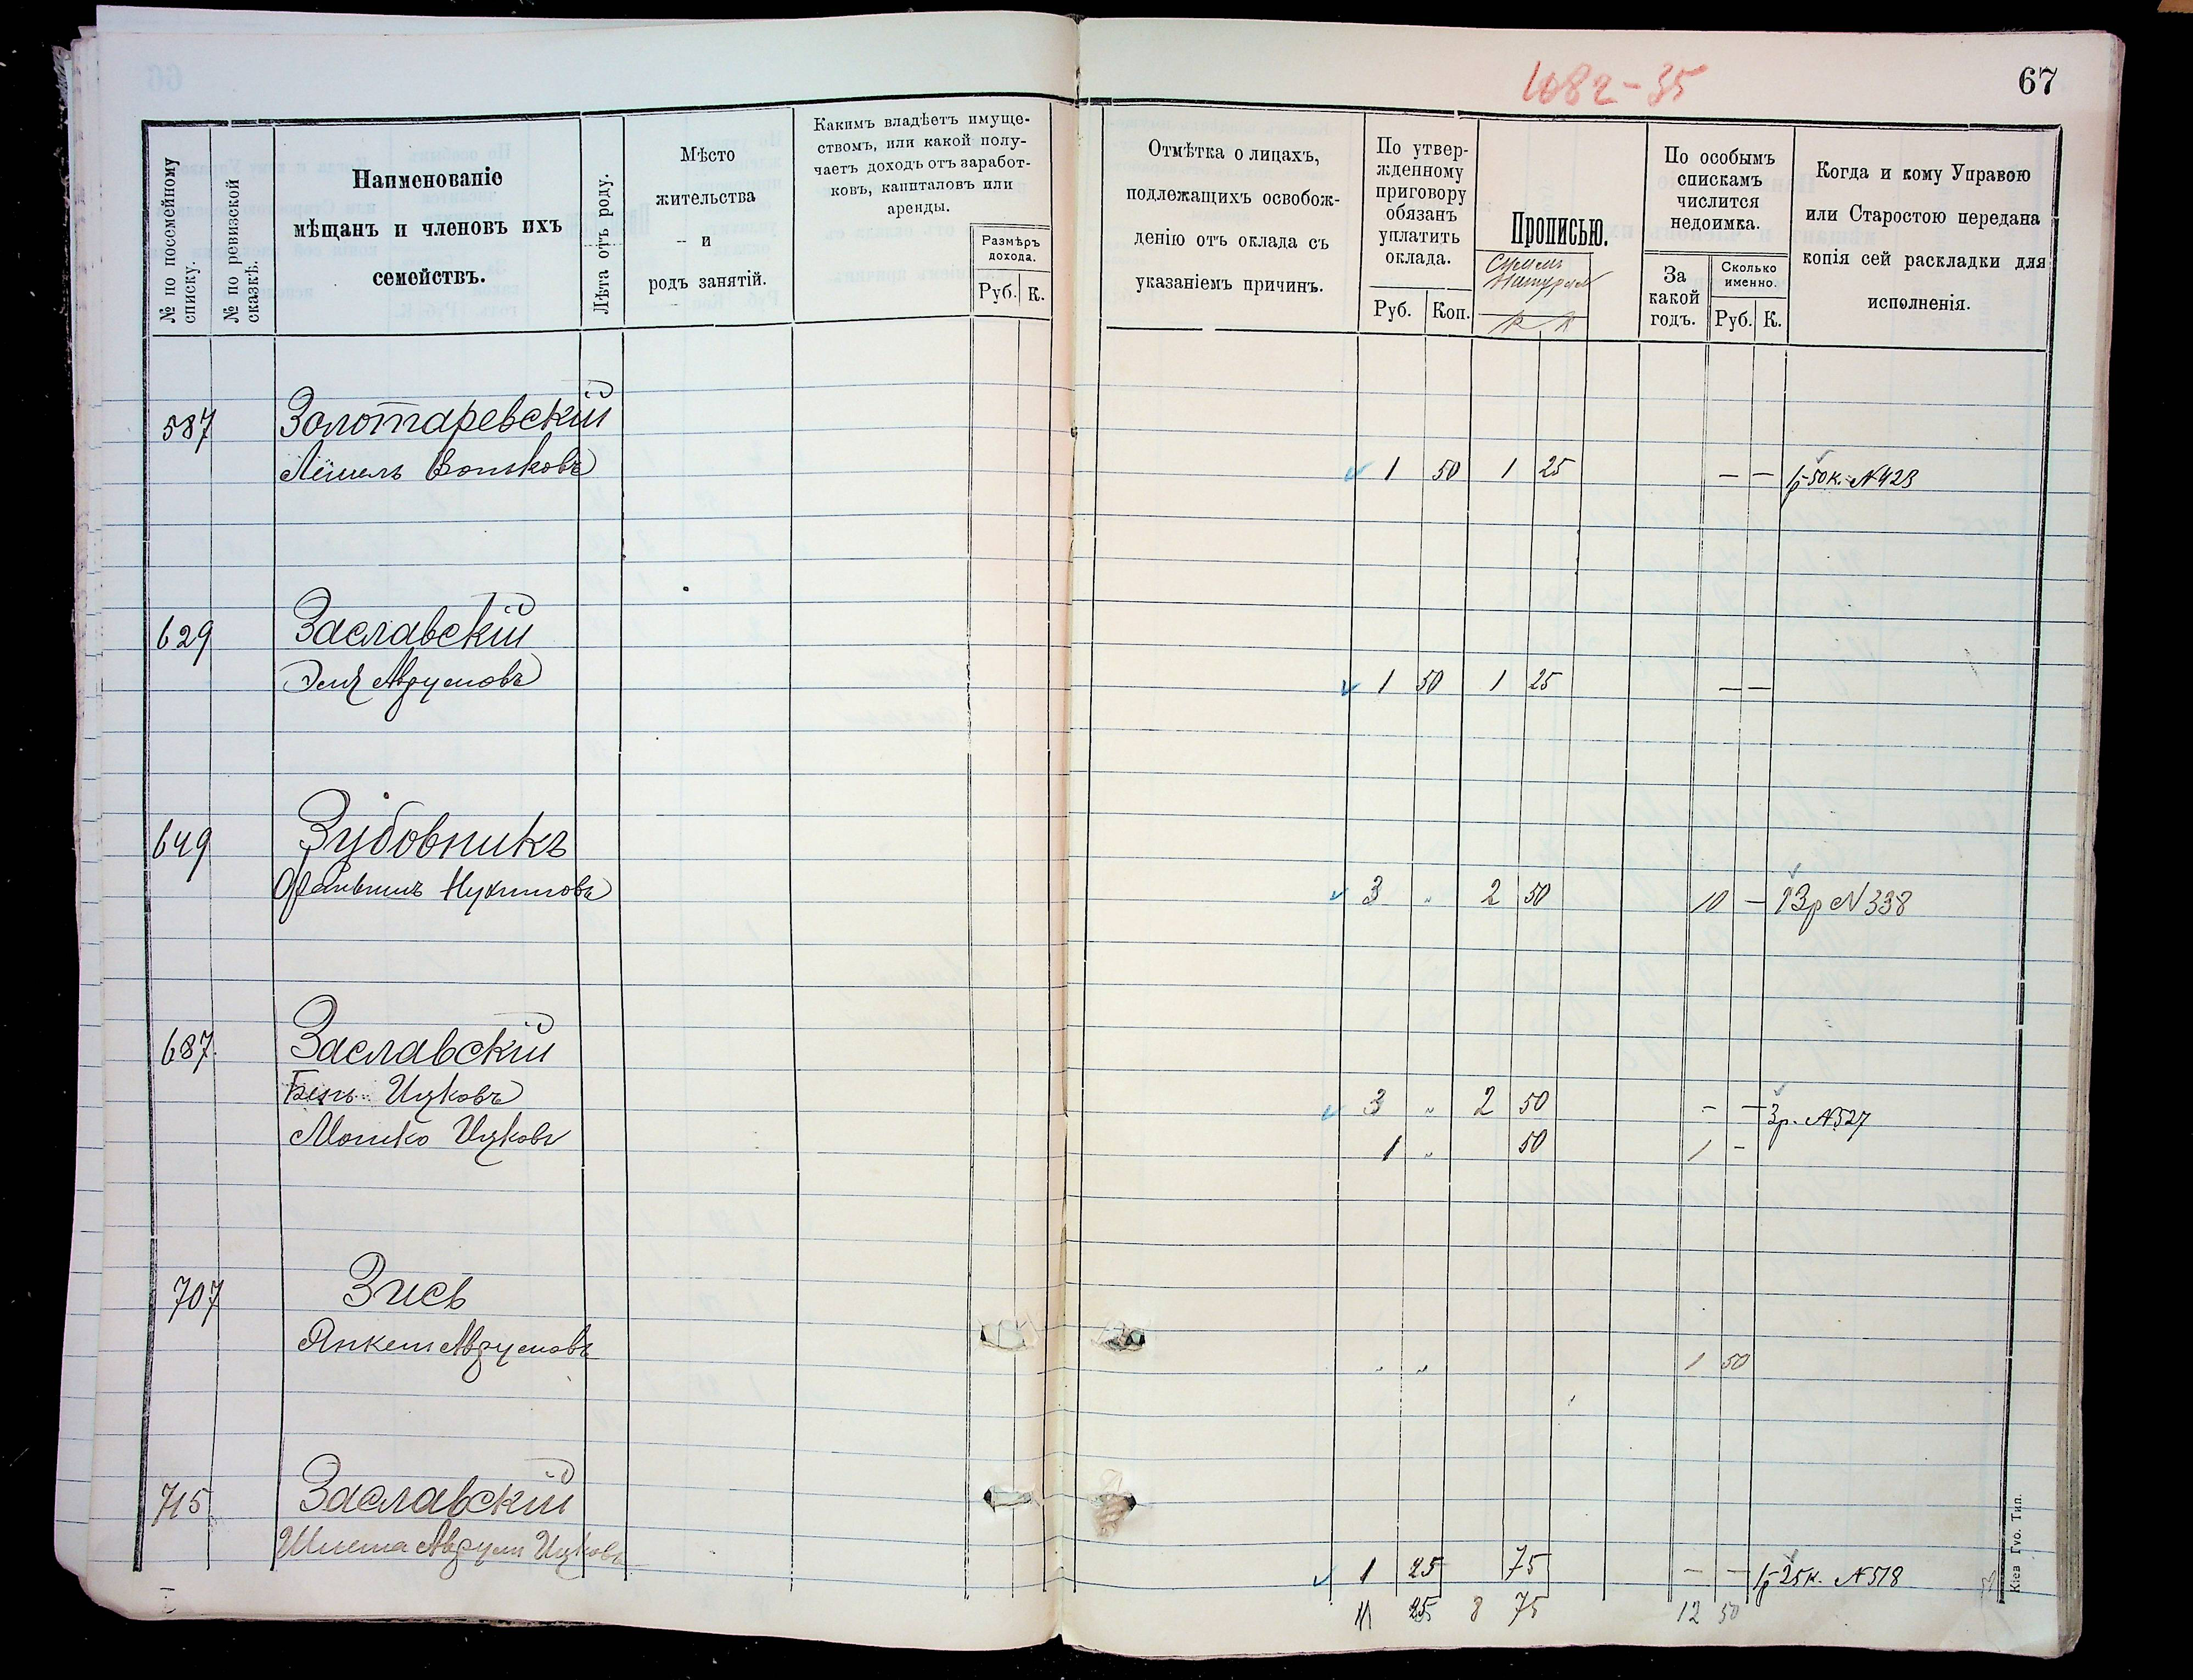 1082-35
67
№ по посемейному списку.
№ по ревизской сказкѣ.
Наименованіе
мѣщанъ и членовъ ихъ
семействъ.
Лѣта отъ роду.
Мѣсто
жительства
и
родъ занятій.
Какимъ владѣетъ имуще-
ствомъ, или какой полу-
чаетъ доходъ отъ заработ-
ковъ, капиталовъ или
аренды.
Размѣръ
дохода.
Руб. К.
Отмѣтка о лицахъ,
подлежащихъ освобож-
денію отъ оклада съ
указаніемъ причинъ.
По утвер-
жденному
приговору
обязанъ
уплатить
оклада.
Руб. Коп.
Прописью.
По особымъ
спискамъ
числится
недоимка.
За
какой
годъ.
Сколько
именно.
Руб. К.
Когда и кому Управою
или Старостою передана
копія сей раскладки для
исполненія.
587 Золотаревскій
1 50 1 25 — — 1р 50к. №423
629 Заславскій
Авrумовъ 1 50 1 25 — —
649 Зубовникъ
Нухимовъ 3 „ 2 50 10 — 13р №338
687. Заславскій
Бень Ицковъ 3 „ 2 50 - — 3р. №527
Мошко Ицковъ 1 „ 50 1 -
707 Зись
Янкель Аврумовъ „ „ 1 50
715 Заславскій
Аврум Ицковъ 1 25 75 — — 1р 25к. №518
11 25 8 75 12 50
Кіев. Губ. Тип.